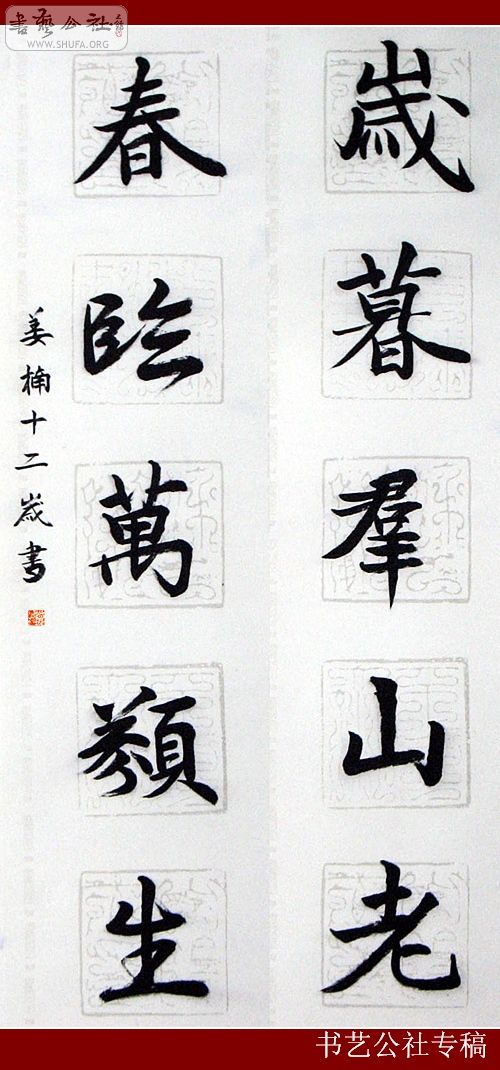 書藝公社
WWW.SHUFA.ORG
歲暮羣山老
春臨萬纇生
姜楠十二歲書
书艺公社专稿